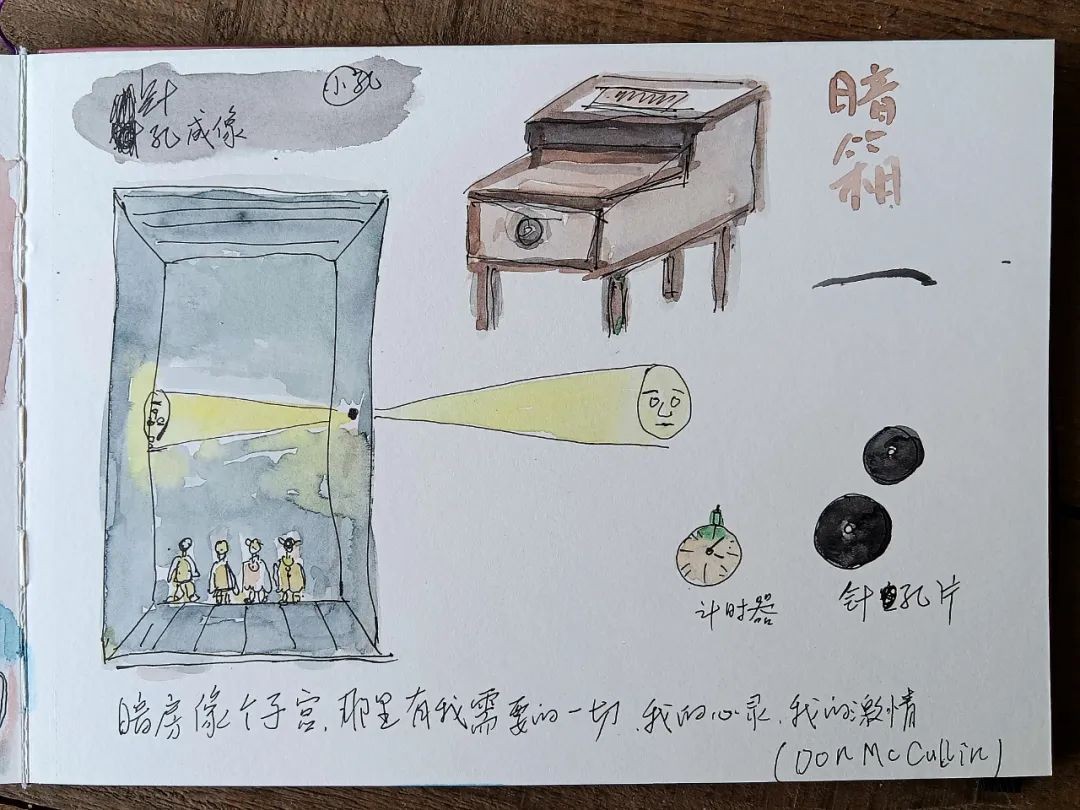 针
孔成像
小孔
暗箱
计时器
针孔片
暗房像个子宫,那里有我需要的一切,我的心灵,我的激情
(Don McCullin)